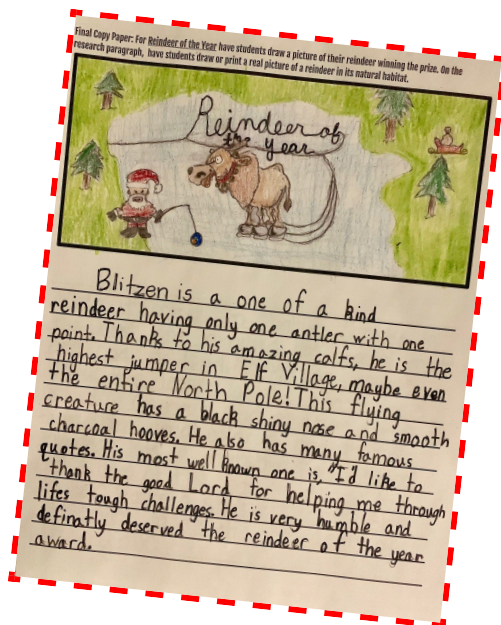 Final Copy Paper: For Reindeer of the Year have students draw a picture of their reindeer winning the prize. On the
research paragraph, have students draw or print a real picture of a reindeer in its natural habitat.
Reindeer of
the
year
Blitzen is a one of a kind
reindeer having only one antler with one
point. Thanks to his amazing calfs, he is the
highest jumper in Elf Village, maybe even
the entire North Pole! This flying
creature has a black shiny nose and smooth
charcoal hooves. He also has many famous
quotes. His most well known one is, "I'd like to
thank the good Lord for helping me through
lifes tough challenges. He is very humble and
definatly deserved the reindeer of the year
award.